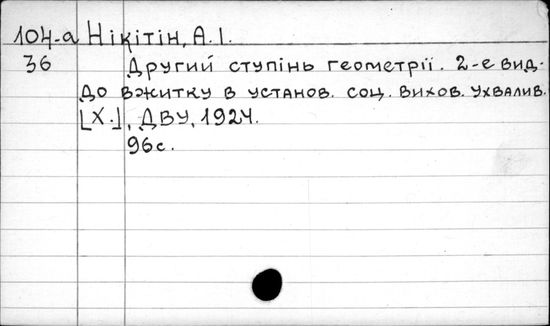 104-а Нікітін, А.І.
36 Другий ступінь геометрії. 2-е вид.
До вжитку в установ. соц. вихов. ухвалив.
[Х.], ДВУ, 1924.
96с.